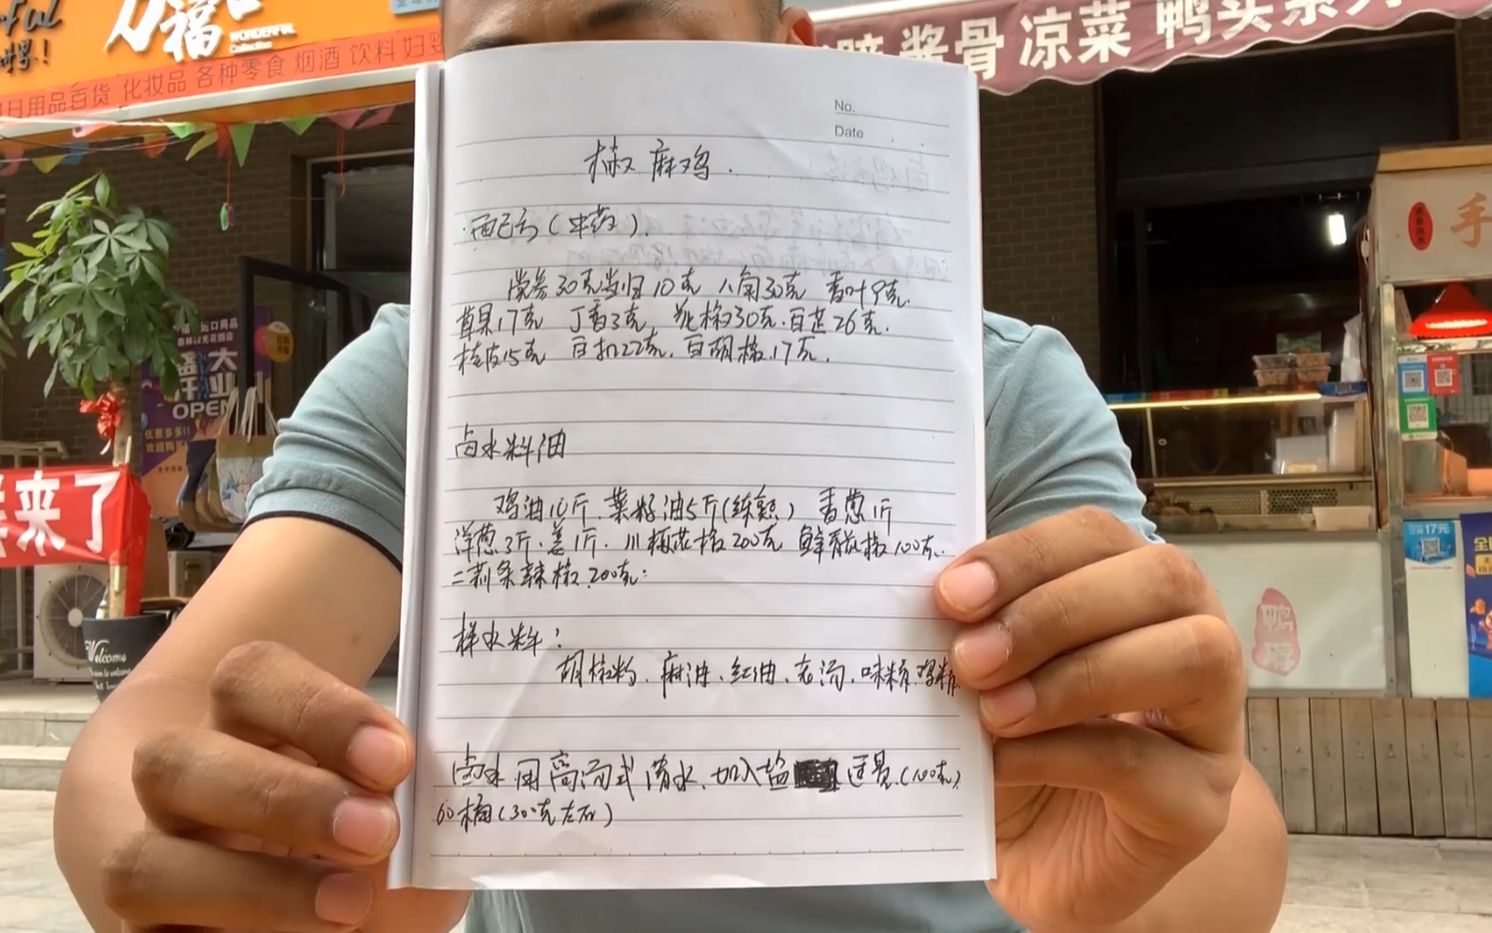 力福
WONDERFUL
Collection
日用品百货 化妆品 各种零食 烟酒 饮料
酱骨 凉菜 鸭头系列
No.
Date
椒麻鸡.
配方(中药).
党参30克当归10克 八角30克 香叶9克.
草果17克 丁香3克, 花椒30克.白芷26克.
桂皮15克 白扣22克. 白胡椒17克.
卤水料油
鸡油10斤.菜籽油5斤(练熟) 香葱1斤
洋葱3斤.姜1斤.川椒花椒200克 鲜青花椒100克.
二荆条辣椒200克:
拌水料:
胡椒粉.麻油.红油.老汤.味精.鸡精
卤水用高汤或清水.加入盐 适量.(100克)
60桶(300克左右)
大
OPEN
来了
Welcome
手
17元
鸭